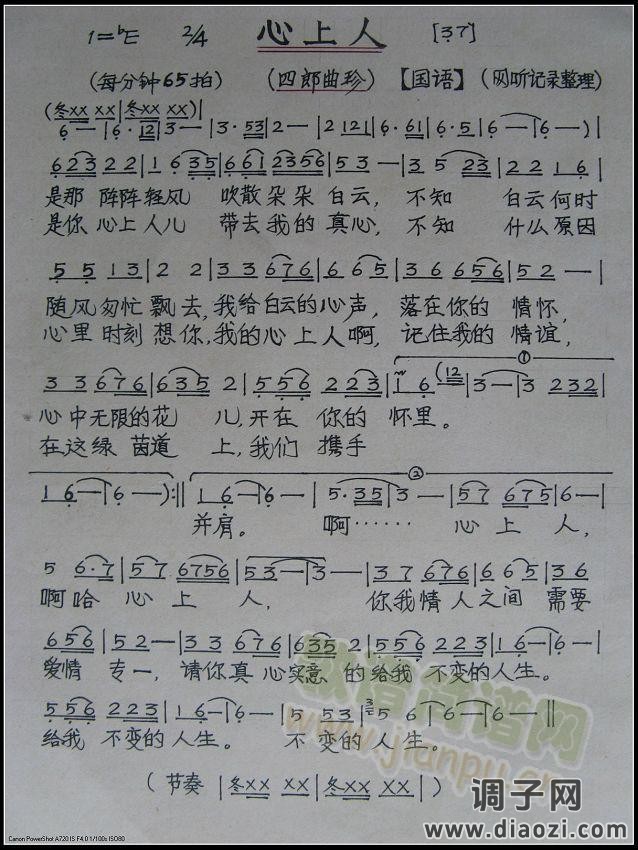 1=♭E 2/4 心上人 [37]
(每分钟65拍) (四郎曲珍) 【国语】 (网听记录整理)
(冬XX XX|冬XX XX)|
6 — |6· 12|3 — |3· 53|2 — |2 121|6· 61|6· 5|6 — |6 — )|
623 22|1 635|661 2356|53 — |35 23|22 16|
是那 阵阵轻风 吹散朵朵 白云, 不知 白云何时
是你 心上人儿 带去我的 真心, 不知 什么原因
55 13|2 2|33 676|66 5|36 656|52 — |
随风匆忙 飘去,我给白云的心声, 落在你的 情怀,
心里时刻 想你,我的心上人啊, 记住我的 情谊,
①
33 676|635 2|556 223|1 6 (12|3 — |3 232|
心中无限的花 儿,开在 你的 怀里。
在这绿 茵道 上,我们 携手
②
1 6 — |6 — ):‖ 1 6 — |6 — |5· 35|3 — |57 675|6 — |
并肩。 啊…… 心上人,
5 6·7|57 6756|53 — |3 — |37 676|66 5|36
啊哈 心上 人, 你我情人之间 需要
656|52 — |33 676|635 2|556 223|1 6 — |6 — |
爱情 专一,请你真心实意 的给我 不变的人生。
556 223|1 6 — |6 — |5 53|3 5 6 |6 — |6 — ‖
给我 不变的人生。 不 变的 人生。
(节奏 |冬XX XX|冬XX XX|)
歌谱简谱网
www.jianpu.cn
调子网
www.diaozi.com
Canon PowerShot A720 IS F4.0 1/100s ISO80